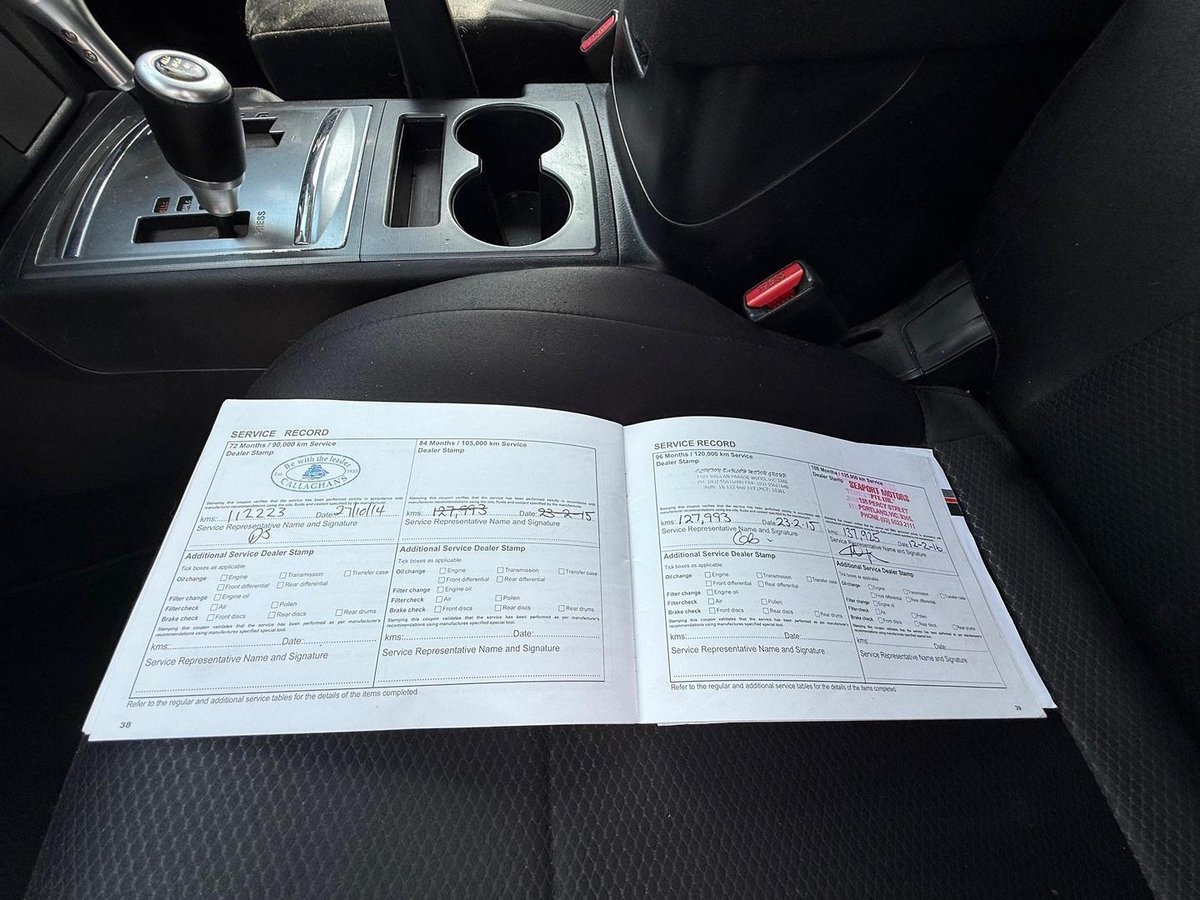 SERVICE RECORD
72 Months / 90,000 km Service
Dealer Stamp
Be with the leader
Est. 1937
CALLAGHANS
Stamping this coupon verifies that the service has been performed strictly in accordance with
manufacturer recommendations using the oils, fluids and coolant specified by the manufacturer
kms: 112223 Date: 27/10/14
Service Representative Name and Signature
Additional Service Dealer Stamp
Tick boxes as applicable
Oil change Engine Transmission Transfer case
Front differential Rear differential
Filter change Engine oil
Filter check Air Pollen
Brake check Front discs Rear discs Rear drums
Stamping this coupon validates that the service has been performed as per manufacturer's
recommendations using manufactures specified special tool.
kms: Date:
Service Representative Name and Signature
84 Months / 105,000 km Service
Dealer Stamp
Stamping this coupon verifies that the service has been performed strictly in accordance with
manufacturer recommendations using the oils, fluids and coolant specified by the manufacturer
kms: 127,993 Date: 23-2-15
Service Representative Name and Signature
Additional Service Dealer Stamp
Tick boxes as applicable
Oil change Engine Transmission Transfer case
Front differential Rear differential
Filter change Engine oil
Filter check Air Pollen
Brake check Front discs Rear discs Rear drums
Stamping this coupon validates that the service has been performed as per manufacturer's
recommendations using manufactures specified special tool.
kms: Date:
Service Representative Name and Signature
Refer to the regular and additional service tables for the details of the items completed
38
SERVICE RECORD
96 Months / 120,000 km Service
Dealer Stamp
kms: 127,993 Date: 23-2-15
Service Representative Name and Signature
Additional Service Dealer Stamp
Tick boxes as applicable
Oil change Engine Transmission Transfer case
Front differential Rear differential
Filter change Engine oil
Filter check Air Pollen
Brake check Front discs Rear discs Rear drums
Stamping this coupon validates that the service has been performed as per manufacturer's
recommendations using manufactures specified special tool.
kms: Date:
Service Representative Name and Signature
108 Months / 135,000 km Service
Dealer Stamp
SEAPORT MOTORS
PTE LTD.
PERCY STREET
PORTLAND, VIC.
PHONE (03) 5523 2111
kms: 137,925 Date 12-2-16
Service Representative Name and Signature
Additional Service Dealer Stamp
Tick boxes as applicable
Oil change Engine Transmission Transfer case
Front differential Rear differential
Filter change Engine oil
Filter check Air Pollen
Brake check Front discs Rear discs Rear drums
kms: Date:
Service Representative Name and Signature
Refer to the regular and additional service tables for the details of the items completed
39
PRESS